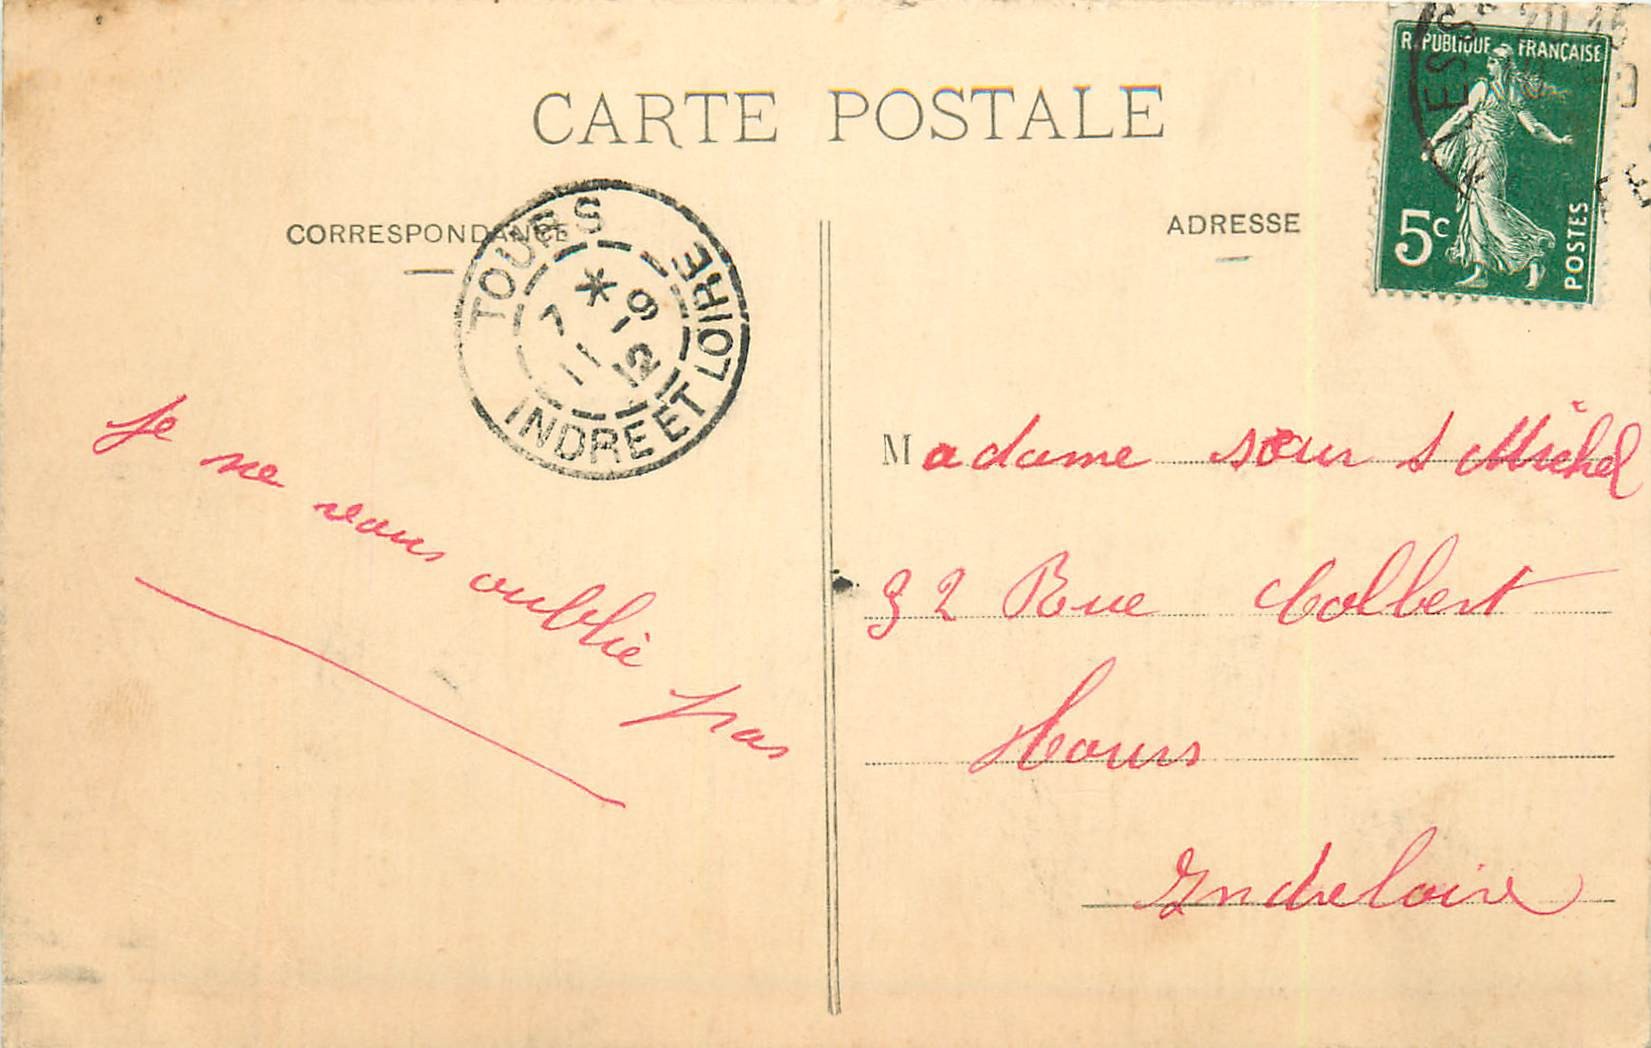 CARTE POSTALE
CORRESPONDANCE
ADRESSE
RÉPUBLIQUE FRANÇAISE
5c
POSTES
TOURS
* 9
7 - 12
11
INDRE ET LOIRE
Je ne vous oublie pas
Madame sœur St Michel
32 Rue Colbert
Tours
Indreloire